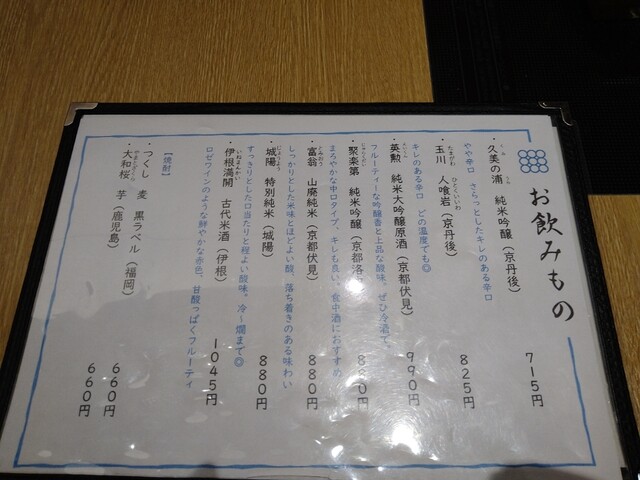 お飲みもの
・久美の浦 純米吟醸(京丹後) 715円
やや辛口 さらっとしたキレのある辛口
・玉川 人喰岩(京丹後) 825円
キレのある辛口 どの温度でも◎
・英勲 純米大吟醸原酒(京都伏見) 990円
フルーティーな吟醸香と上品な酸味。ぜひ冷酒で。
・聚楽第 純米吟醸(京都洛 880円
まろやかな中口タイプ、キレも良い、食中酒におすすめ
・富翁 山廃純米(京都伏見) 880円
しっかりとした米味とほどよい酸、落ち着きのある味わい
・城陽 特別純米(城陽) 880円
すっきりとした口当たりと程よい酸味。冷〜燗まで◎
・伊根満開 古代米酒(伊根) 1045円
ロゼワインのような鮮やかな赤色、甘酸っぱくフルーティ
【焼酎】
・つくし 麦 黒ラベル(福岡) 660円
・大和桜 芋(鹿児島) 660円